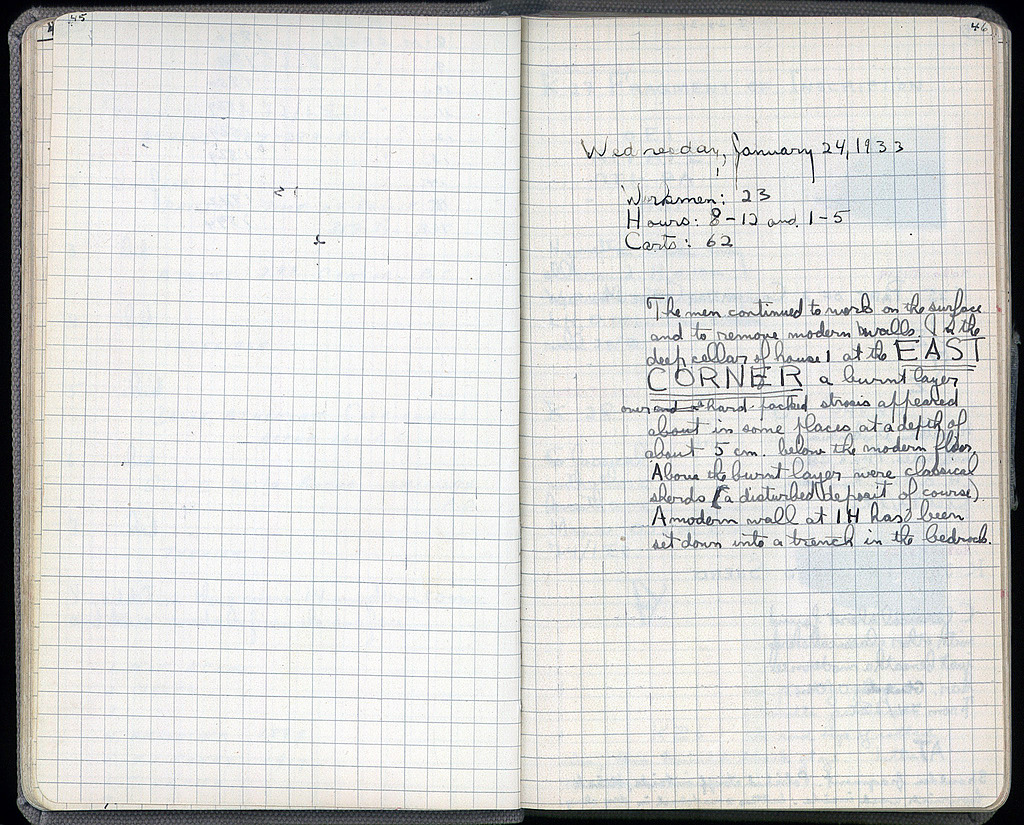 45
46
Wednesday, January 24, 1933
Workmen: 23
Hours: 8-12 and 1-5
Carts: 62
The men continued to work on the surface
and to remove modern walls. In the
deep cellar of house 1 at the EAST
CORNER a burnt layer
over and a hard-packed strosis appeared
about in some places at a depth of
about 5 cm. below the modern floor.
Above the burnt layer were classical
sherds (a disturbed deposit of course).
A modern wall at 14 has been
set down into a trench in the bedrock.